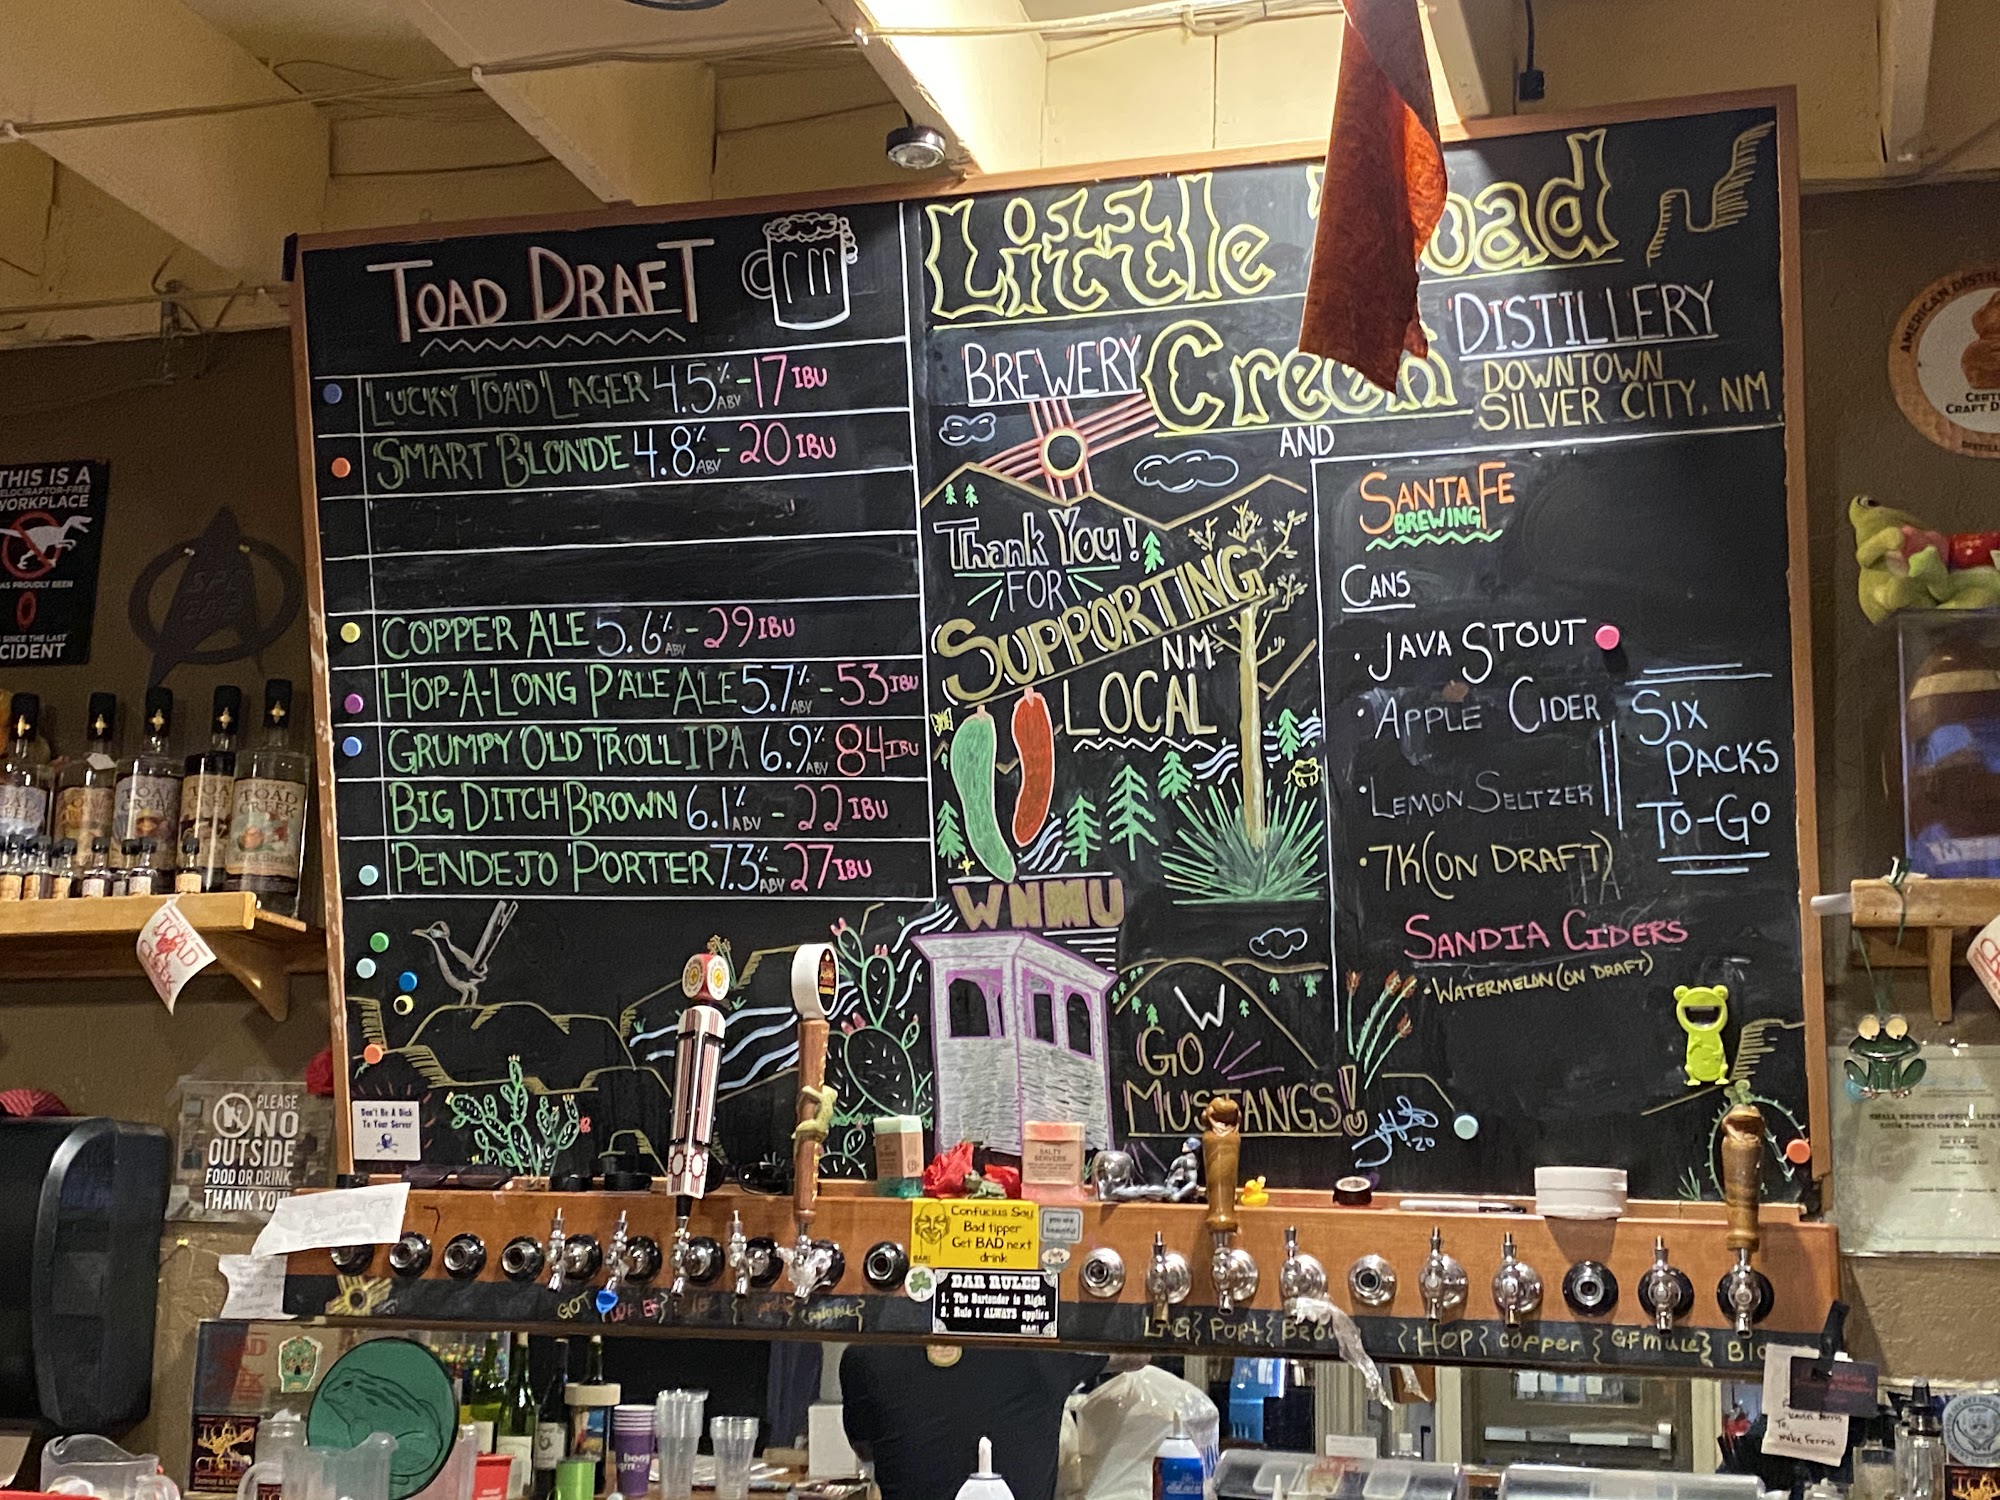 TOAD DRAFT
LUCKY TOAD LAGER 4.5% ABV - 17 IBU
SMART BLONDE 4.8% ABV - 20 IBU
COPPER ALE 5.6% ABV - 29 IBU
HOP-A-LONG PALE ALE 5.7% ABV - 53 IBU
GRUMPY OLD TROLL IPA 6.9% ABV 84 IBU
BIG DITCH BROWN 6.1% ABV - 22 IBU
PENDEJO PORTER 7.3% ABV - 27 IBU
Little Toad
BREWERY Creek DISTILLERY
DOWNTOWN
SILVER CITY, NM
AND
Thank You!
FOR
SUPPORTING
N.M.
LOCAL
WNMU
W
GO
MUSTANGS!
20
SANTA FE
BREWING
CANS
· JAVA STOUT
· APPLE CIDER
· LEMON SELTZER
· 7K (ON DRAFT)
IPA
SIX
PACKS
TO-GO
SANDIA CIDERS
· WATERMELON (ON DRAFT)
THIS IS A
WORKPLACE
HAS PROUDLY BEEN
SINCE THE LAST
Don't Be A Dick
To Your Server
PLEASE
NO
OUTSIDE
FOOD OR DRINK
THANK YOU
TOAD
CREEK
TOAD
SALTY
SERVERS
Confucius Say
Bad tipper
Get BAD next
drink
BAR!
you are
beautiful
BAR RULES
1. The Bartender is Right
2. Rule 1 ALWAYS applies
BAR!
PORT
HOP } COPPER } GF MULE }
AMERICAN
CRAFT
SMALL BREWER
Little Toad Creek Brewery &
Make Ferris